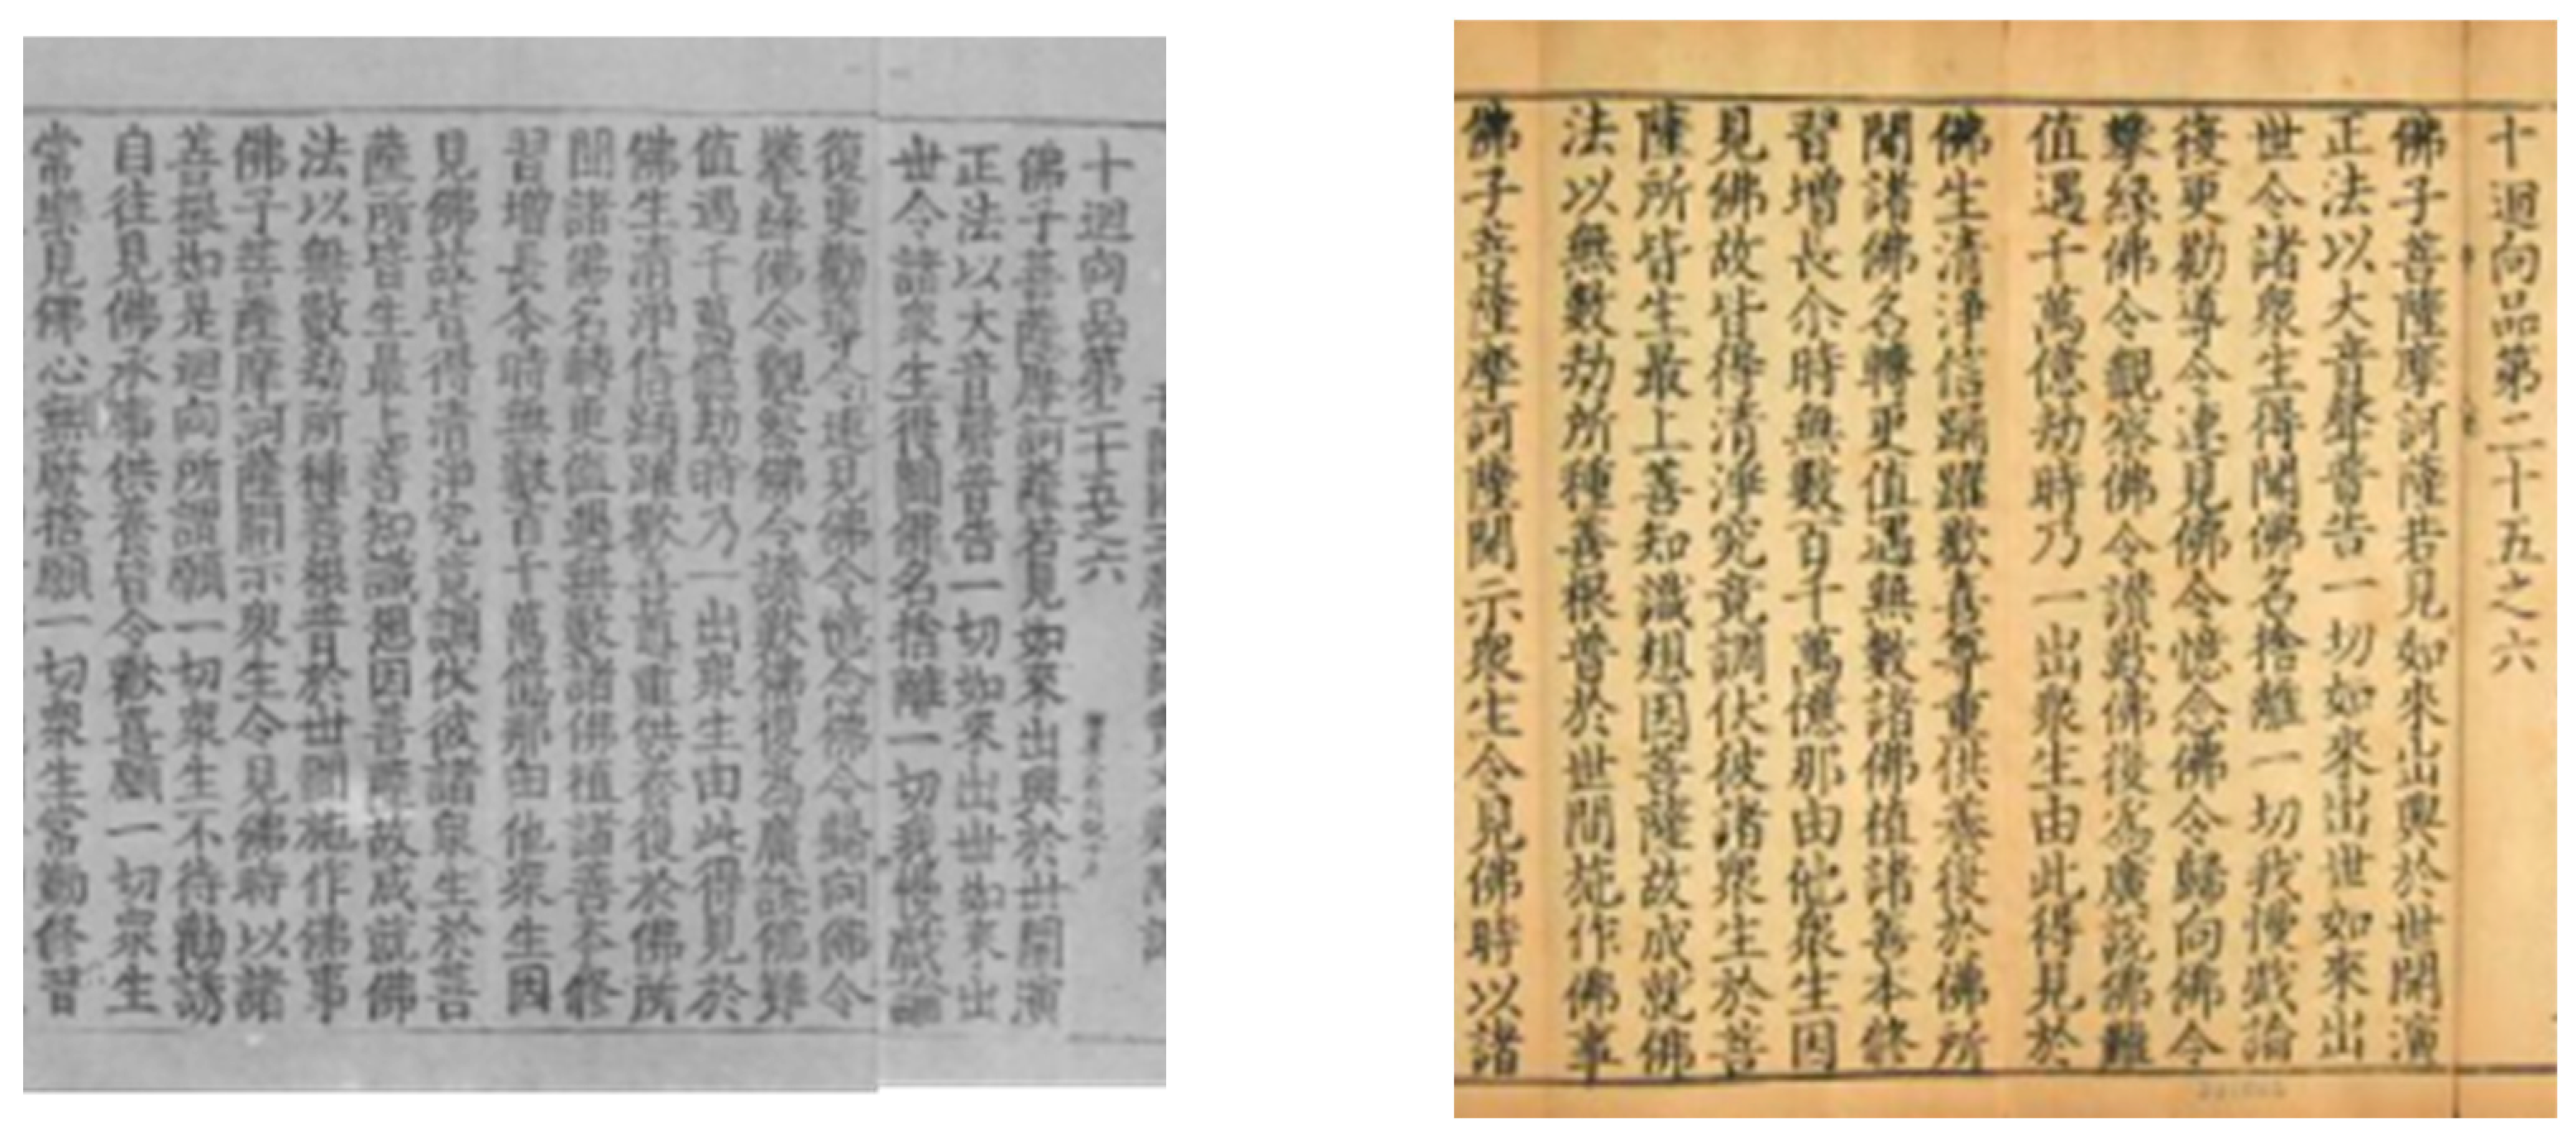 十迴向品第二十五之六
佛子菩薩摩訶薩若見如來出興於世開演
正法以大音聲普告一切如來出世如來出
世令諸衆生得聞佛名捨離一切我慢戲論
復更勸導令速見佛令憶念佛令歸向佛令
攀緣佛令觀察佛令讚歎佛復為廣說佛難
值遇千萬億劫時乃一出衆生由此得見於
佛生清淨信踊躍歡喜尊重供養復於佛所
聞諸佛名轉更值遇無數諸佛植諸善本修
習增長尒時無數百千萬億那由他衆生因
見佛故皆得清淨究竟調伏彼諸衆生於菩
薩所皆生最上善知識想因菩薩故成就佛
法以無數劫所種善根普於世間施作佛事
佛子菩薩摩訶薩開示衆生令見佛時以諸
善根如是迴向所謂願一切衆生不待勸誘
自往見佛承事供養皆令歡喜願一切衆生
常樂見佛心無廢捨願一切衆生常勤修習
十迴向品第二十五之六
佛子菩薩摩訶薩若見如來出興於世開演
正法以大音聲普告一切如來出世如來出
世令諸衆生得聞佛名捨離一切我慢戲論
復更勸導令速見佛令憶念佛令歸向佛令
攀緣佛令觀察佛令讚歎佛復為廣說佛難
值遇千萬億劫時乃一出衆生由此得見於
佛生清淨信踊躍歡喜尊重供養復於佛所
聞諸佛名轉更值遇無數諸佛植諸善本修
習增長尒時無數百千萬億那由他衆生因
見佛故皆得清淨究竟調伏彼諸衆生於菩
薩所皆生最上善知識想因菩薩故成就佛
法以無數劫所種善根普於世間施作佛事
佛子菩薩摩訶薩開示衆生令見佛時以諸